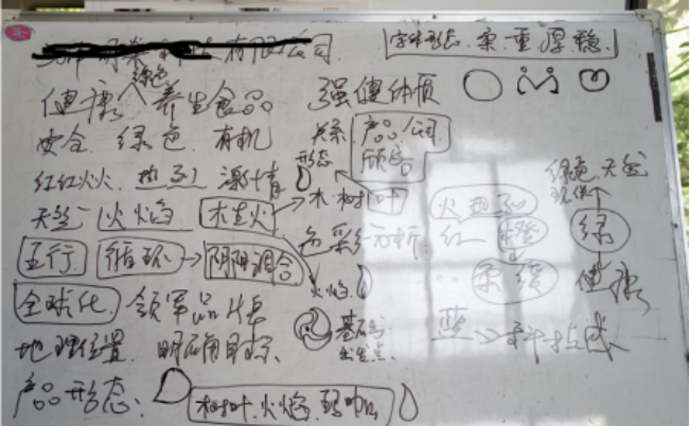 有限公司
字体形态、柔、重、厚、稳
绿色
健康 养生食品
强健体质
安全 绿色 有机
关系
产品、公司
顾客
红红火火、热烈 激情
形态
绿色、天然
天然 火焰 木生火
木、树叶
火热
五行 循环 阴阳调合
色彩分析：红 橙 绿
火焰
柔 健康
全球化 领军品牌
地理位置 明确目标
基础
出发点
蓝 科技感
产品形态、
树叶、火焰